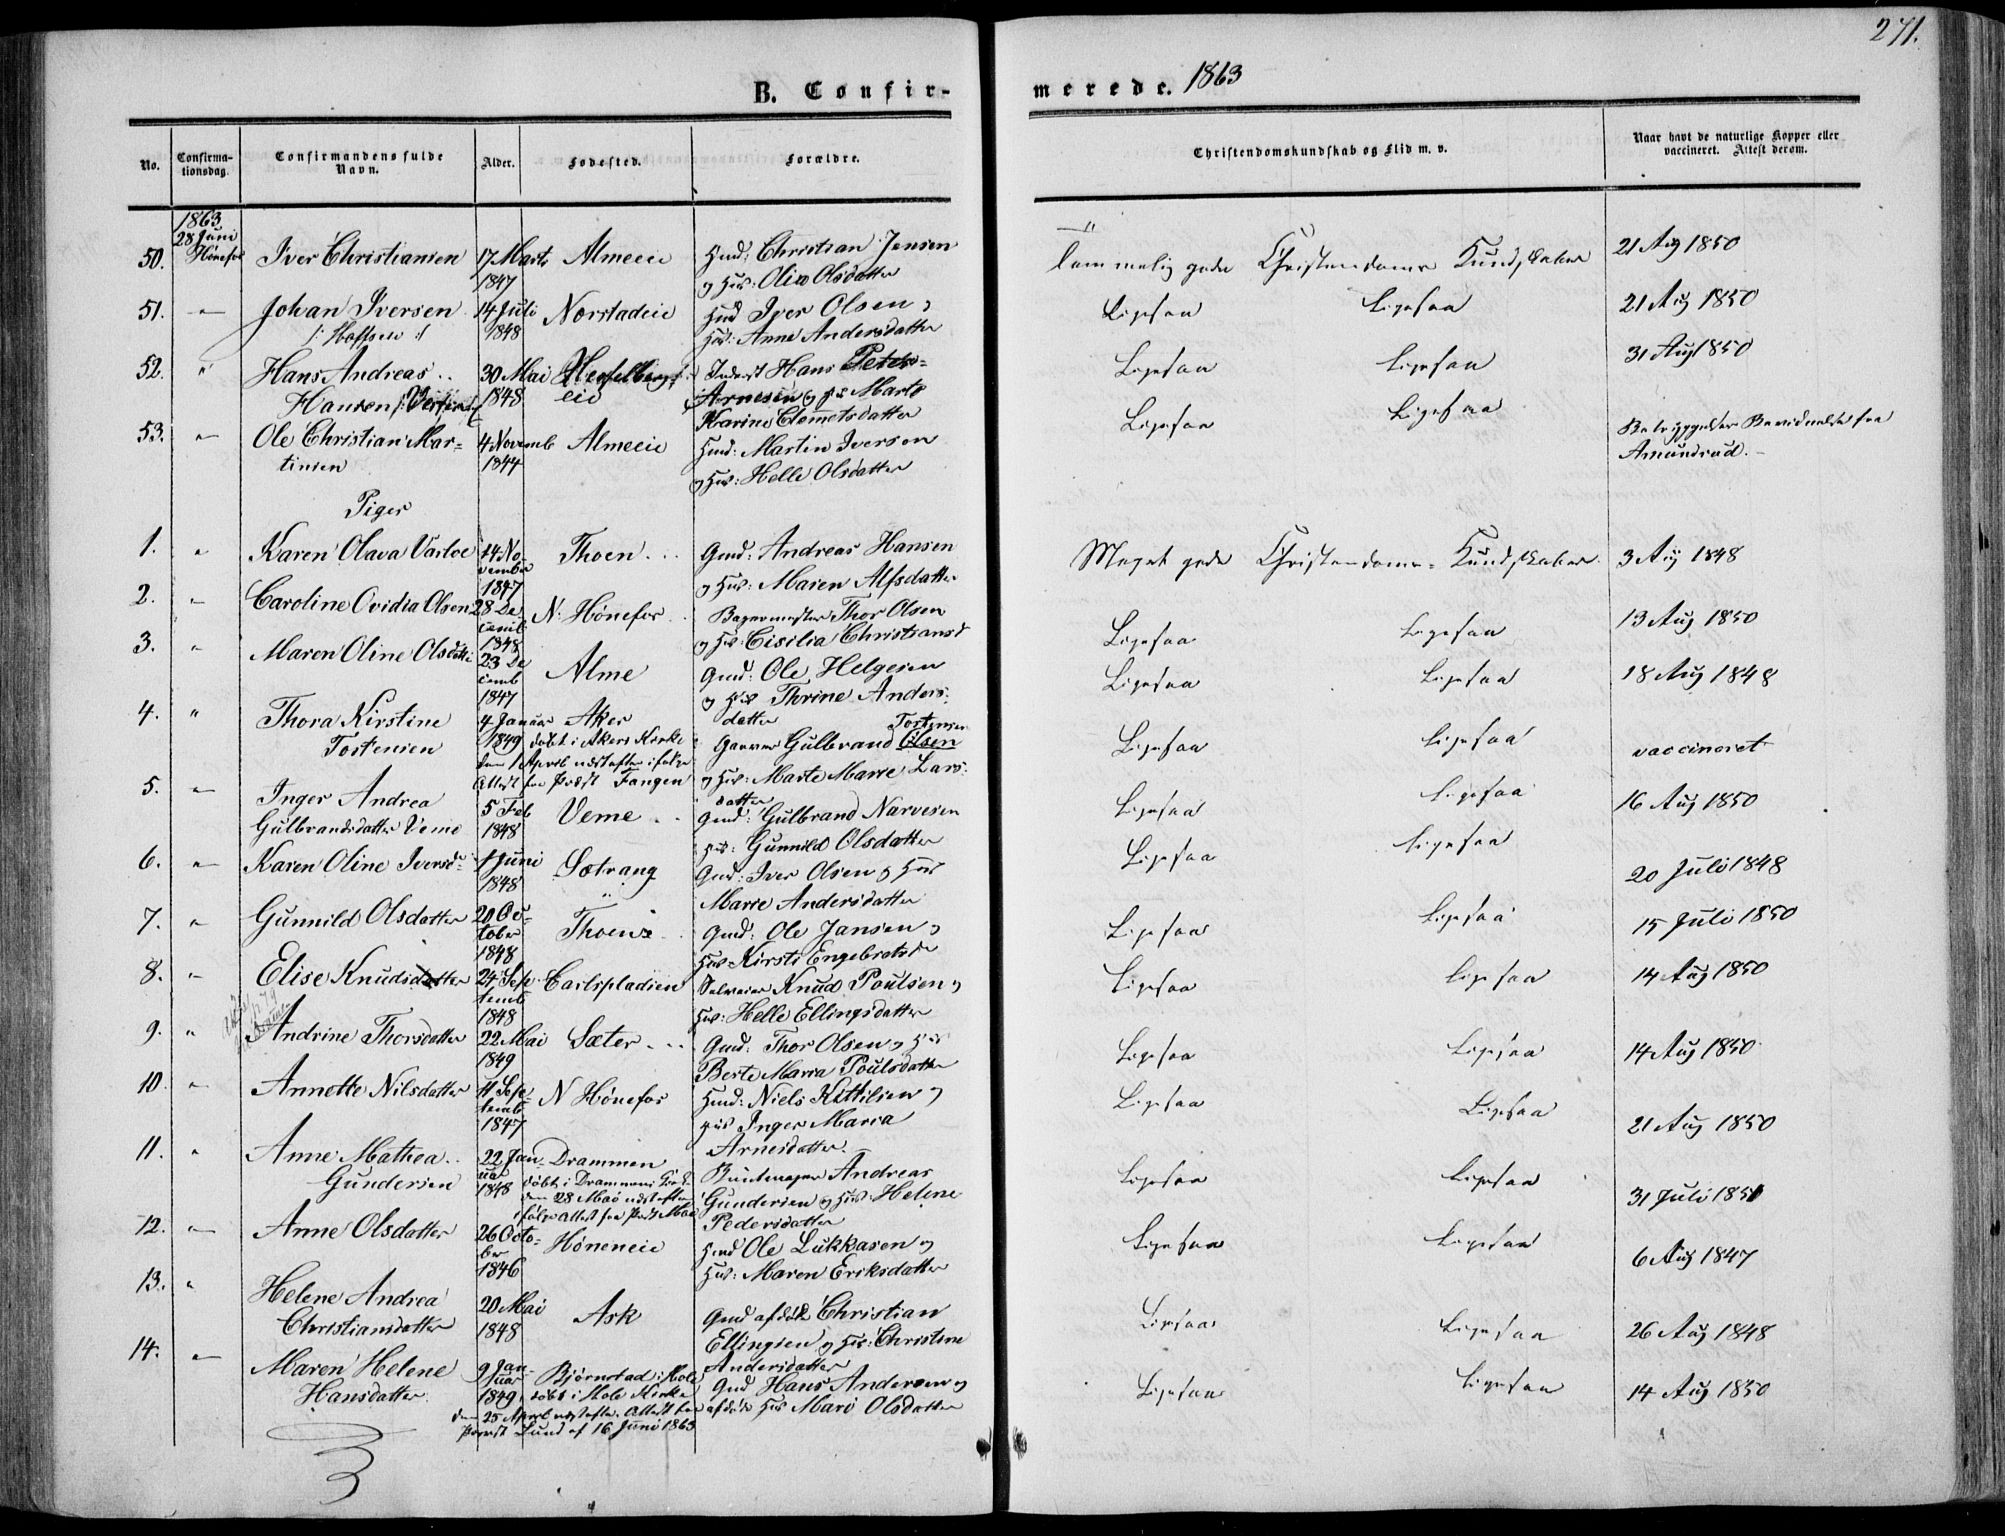 271.
B. Confirmerede. 1863
No. | Confirmationsdag. | Confirmandens fulde Navn. | Alder. | Fødested. | Forældre. | Christendomskundskab og Flid m. v. | Naar havt de naturlige Kopper eller vaccineret. Attest derom.
1863
28 Juni
Hönefos
50. Iver Christiansen 17 Marts 1847 Almeeie Hmd: Christian Jensen
og Hus: Olia Olsdatter Temmelig gode Christendoms Kundskaber 21 Aug 1850
51. " Johan Iversen 14 Juli 1848 Norstadeie Hmd Iver Olsen og
/: Hoffsen :/ Hus: Anne Andersdatter Ligesaa Ligesaa 21 Aug 1850
52. " Hans Andreas 30 Mai 1848 Hesselbergs eie Inderst Hans Peter
Hansen Arnesen og Marte
Karine Clemetsdatter Ligesaa Ligesaa 31 Aug 1850
53. " Ole Christian Martinsen 4 Novemb 1844 Almeeie Hmd: Martin Iversen
og Hus: Helle Olsdatter Ligesaa Ligesaa
Amundrud.
Piger
1. " Karen Olava Varloe 14 November 1847 Thoen Gmd: Andreas Hansen
og Hus: Maren Alfsdatter Meget gode Christendoms Kundskaber 3 Aug 1848
2. " Caroline Ovidia Olsen 28 Decemb 1848 N. Hönefos Bagermester Thor Olsen
og Hus: Cisilia Christiansd Ligesaa Ligesaa 13 Aug 1850
3. " Maren Oline Olsdatter 23 Decemb 1847 Alme Gmd: Ole Helgesen
og Hus Thrine Andersdatter Ligesaa Ligesaa 18 Aug 1848
4. " Thora Kirstine 4 Januar 1849 Aker
Tostensen döbt i Akers Kirke
den 1 April næstefter ifölge
Attest fra Præst Fangen
Garver Gulbrand Olsen Tostensen
og Hus: Marte Marie Larsdatter Ligesaa Ligesaa vaccineret
5. " Inger Andrea 5 Feb 1848 Veme Gmd: Gulbrand Narvesen
Gulbrandsdatter Veme Hus: Gunnild Olsdatter Ligesaa Ligesaa 16 Aug 1850
6. " Karen Oline Iversd 1 Juni 1848 Sætrang Gmd: Iver Olsen og Hus
Marie Andersdatter Ligesaa Ligesaa 20 Juli 1848
7. " Gunnild Olsdatter 20 October 1848 Thoens Gmd: Ole Jansen og
Hus Kirsti Engebretsd Ligesaa Ligesaa 15 Juli 1850
8. " Elise Knudsdatter 24 Septemb 1848 Carlspladsen Selveier Knud Poulsen og
Hus: Helle Ellingsdatter Ligesaa Ligesaa 14 Aug 1850
9. " Andrine Thorsdatter 22 Mai 1849 Sæter Gmd: Thor Olsen og Hus
Berte Maria Poulsdatter Ligesaa Ligesaa 14 Aug 1850
10. " Annette Nilsdatter 11 Septemb 1847 N Hönefos Hmd: Niels Kittilsen og
Hus Inger Maria
Arnesdatter Ligesaa Ligesaa 21 Aug 1850
11. " Anne Mathea 22 Januar 1848 Drammen
Gundersen döbt i Drammens
den 28 Mai næstefter
ifölge Attest fra Præst Moe
Buntmager Andreas
Gundersen og Hus: Helene
Pedersdatter Ligesaa Ligesaa 31 Juli 1851
12. " Anne Olsdatter 26 October 1846 Höneneie Hmd Ole Lukkasen og
Hus: Maren Eriksdatter Ligesaa Ligesaa 6 Aug 1847
13. " Helene Andrea 20 Mai 1848 Ask Gmd afdöde Christian
Christiansdatter Ellingsen og Hus: Christine
Andersdatter Ligesaa Ligesaa 26 Aug 1848
14. " Maren Helene 9 Januar 1849 Björnstad i Hole
Hansdatter döbt i Hole Kirke
den 25 April næstefter. Attest fra
Præst Lund af 16 Juni 1863
Gmd Hans Andersen og
afdöde Hus Mari Olsdatter Ligesaa Ligesaa 14 Aug 1850